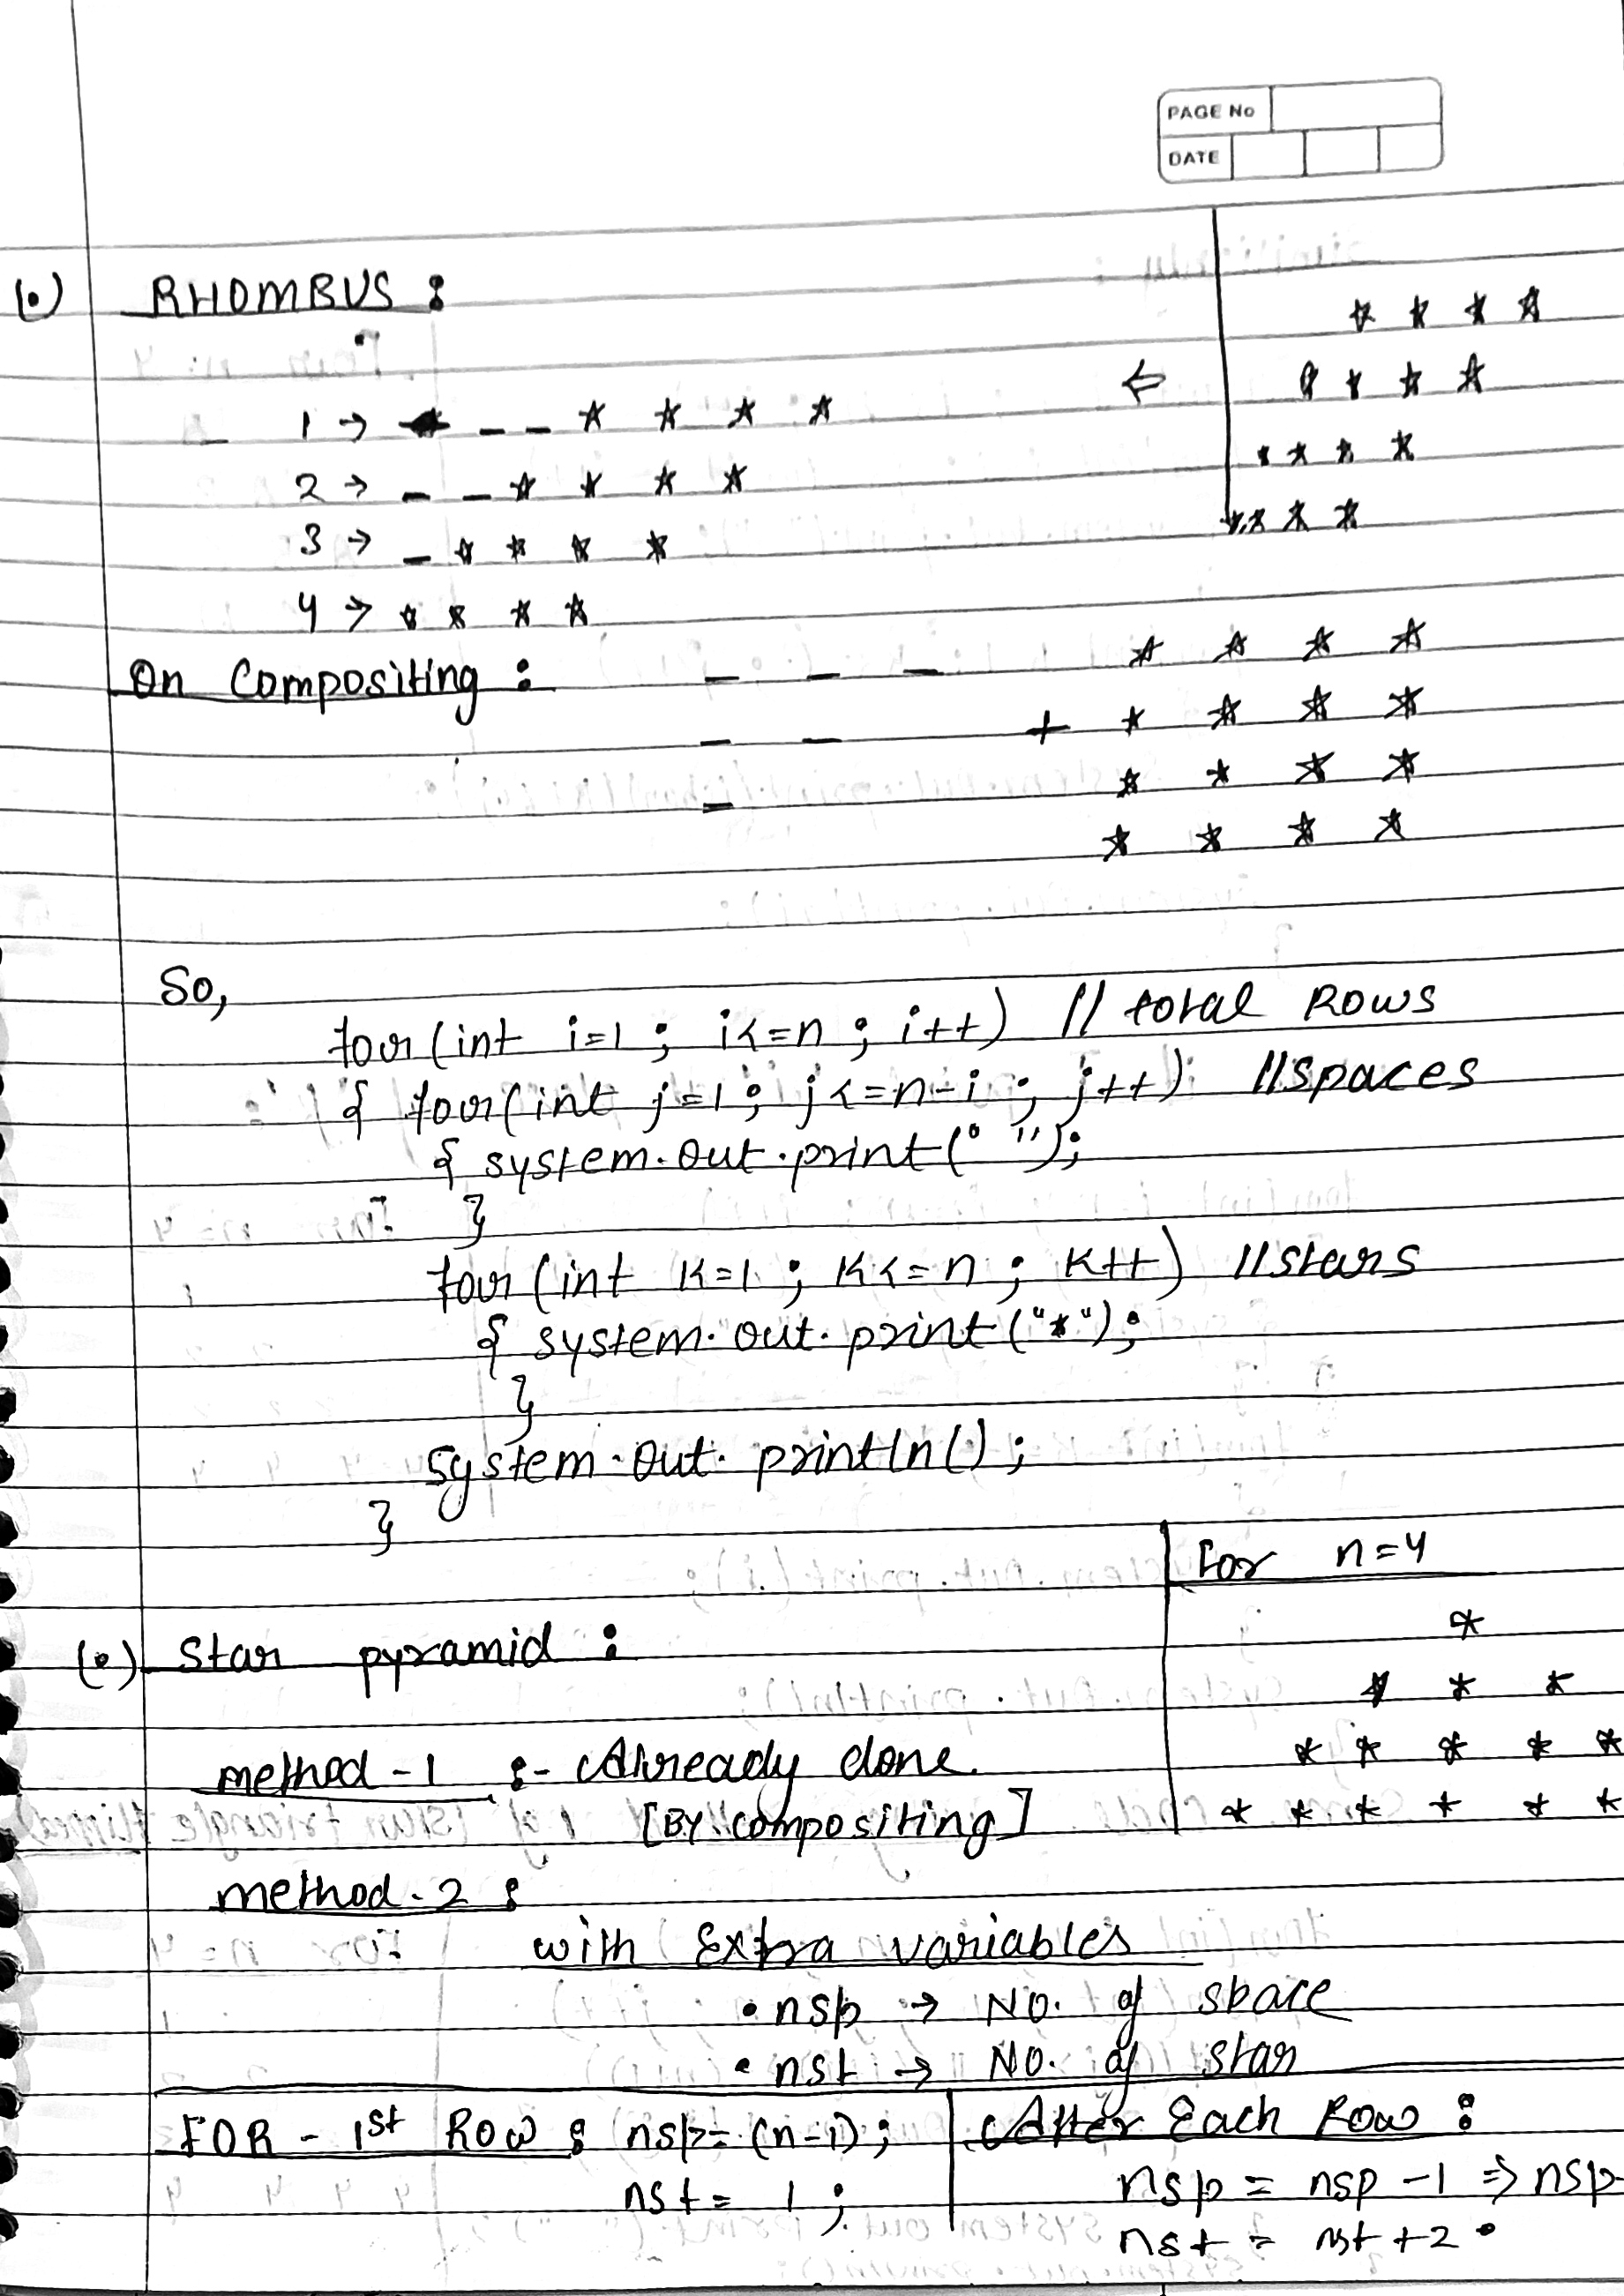 PAGE No
DATE
(•) RHOMBUS :
* * * *
⇐ * * * *
* * * *
* * * *
1 → _ _ _ * * * *
2 → _ _ * * * *
3 → _ * * * *
4 → * * * *
On Compositing :
_ _ _ * * * *
_ _ + * * * *
_ * * * *
* * * *
So,
for (int i=1 ; i<=n ; i++) // total Rows
{ for (int j=1 ; j<=n-i ; j++) //spaces
{ system.out.print(" ");
}
for (int K=1 ; K<=n ; K++) //stars
{ system.out.print("*");
}
system.out.println() ;
}
For n=4
*
* * *
* * * * *
* * * * * *
(•) Star pyramid :
method-1 :- Already done.
[BY compositing]
method-2 :
with Extra variables
• nsp → NO. of space
• nst → NO. of star
FOR - 1st ROW : nsp= (n-i) ;
nst = 1 ;
After Each Row :
nsp = nsp -1 ⇒ nsp-
nst = nst +2 •